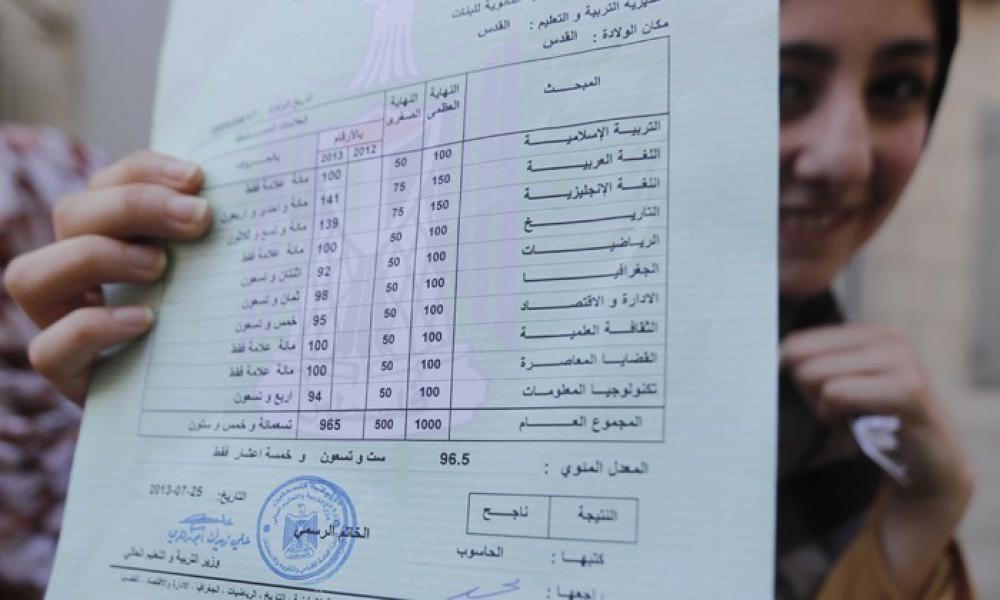 للبنات
مديرية التربية و التعليم : القدس
مكان الولادة : القدس
المبحث النهاية العظمى النهاية الصغرى
بالارقام
2012 2013
التربية الإسلامية 100 50 100 مائة علامة فقط
اللغة العربية 150 75 141 مائة و احدى و اربعون
اللغة الإنجليزية 150 75 139 مائة و تسع و ثلاثون
التاريخ 100 50 100 مائة علامة فقط
الرياضيات 100 50 92 اثنتان و تسعون
الجغرافيا 100 50 98 ثمان و تسعون
الادارة و الاقتصاد 100 50 95 خمس و تسعون
الثقافة العلمية 100 50 100 مائة علامة فقط
القضايا المعاصرة 100 50 100 مائة علامة فقط
تكنولوجيا المعلومات 100 50 94 اربع و تسعون
المجموع العام 1000 500 965 تسعمائة و خمس و ستون
المعدل المئوي : 96.5 ست و تسعون و خمسة اعشار فقط
النتيجة ناجح
التاريخ: 25-07-2013
الخاتم الرسمي
كتبها : الحاسوب
وزير التربية و التعليم العالي
راجعها :